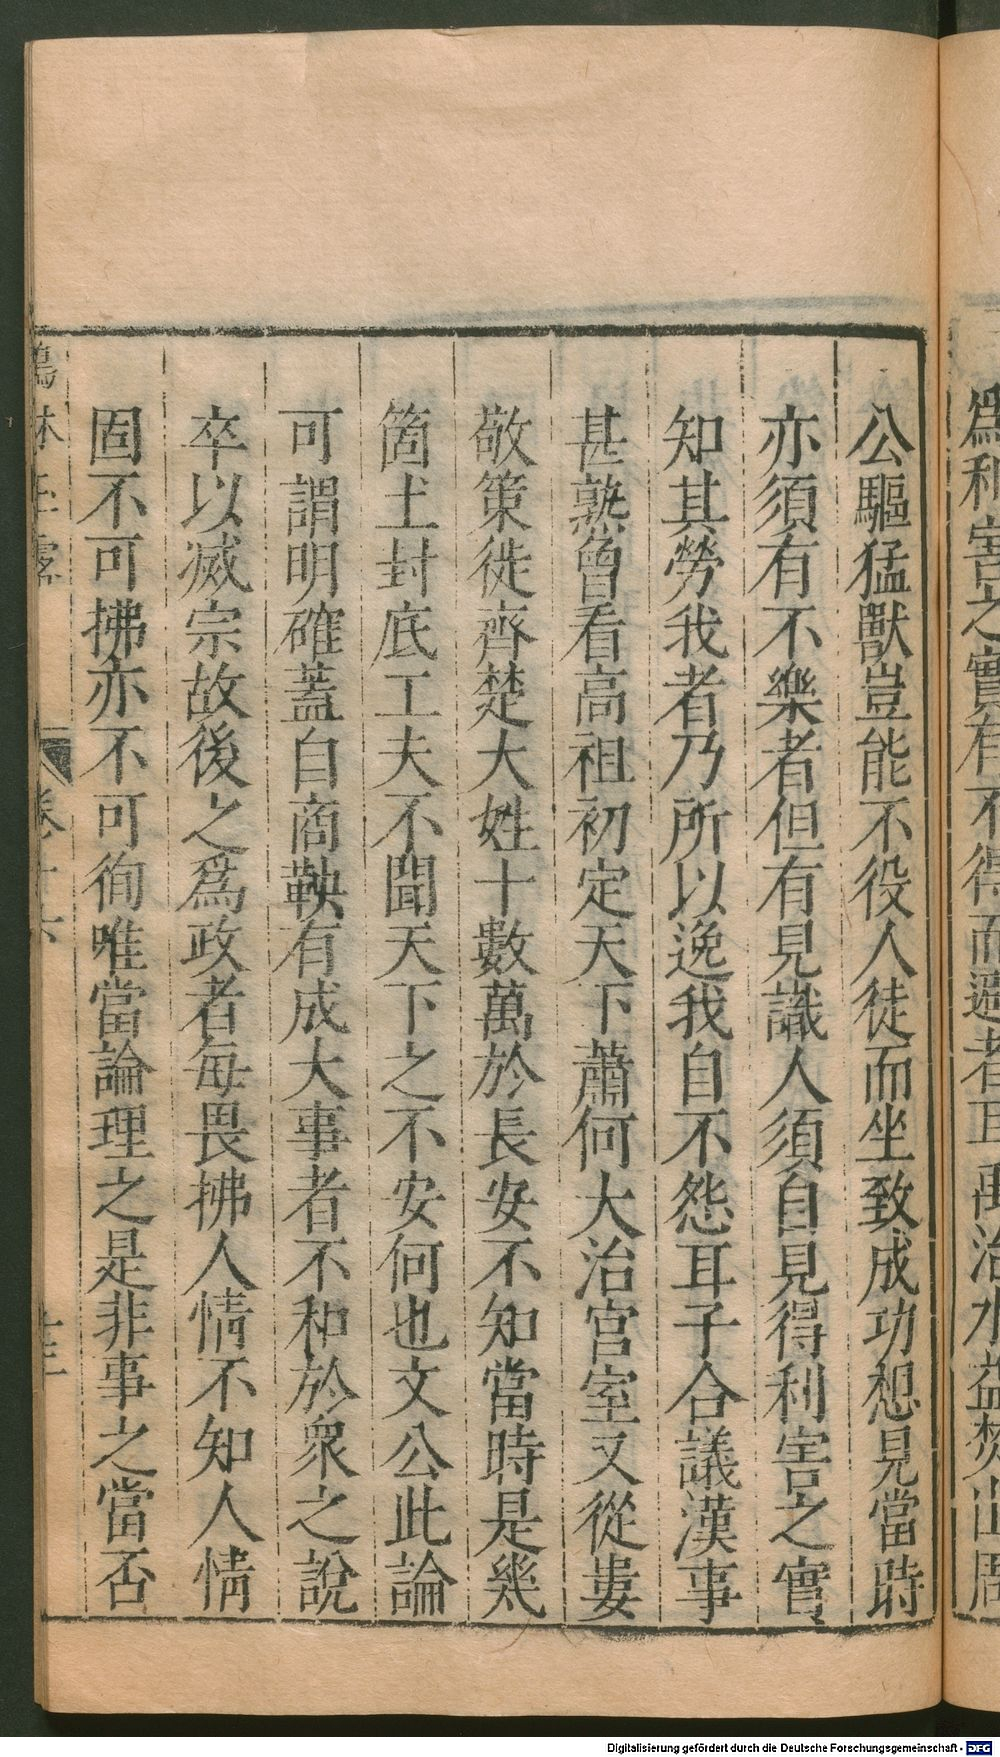 爲利害之實有不得而避者耳禹治水益焚山周
公驅猛獸豈能不役人徒而坐致成功想見當時
亦須有不樂者但有見識人須自見得利害之實
知其勞我者乃所以逸我自不怨耳子合議漢事
甚熟曾看高祖初定天下蕭何大治宫室又從婁
敬策徙齊楚大姓十數萬於長安不知當時是幾
箇土封底工夫不聞天下之不安何也文公此論
可謂明確蓋自商鞅有成大事者不和於衆之說
卒以滅宗故後之爲政者每畏拂人情不知人情
固不可拂亦不可徇唯當論理之是非事之當否
鶴林玉露 卷十六 十三
Digitalisierung gefördert durch die Deutsche Forschungsgemeinschaft - DFG